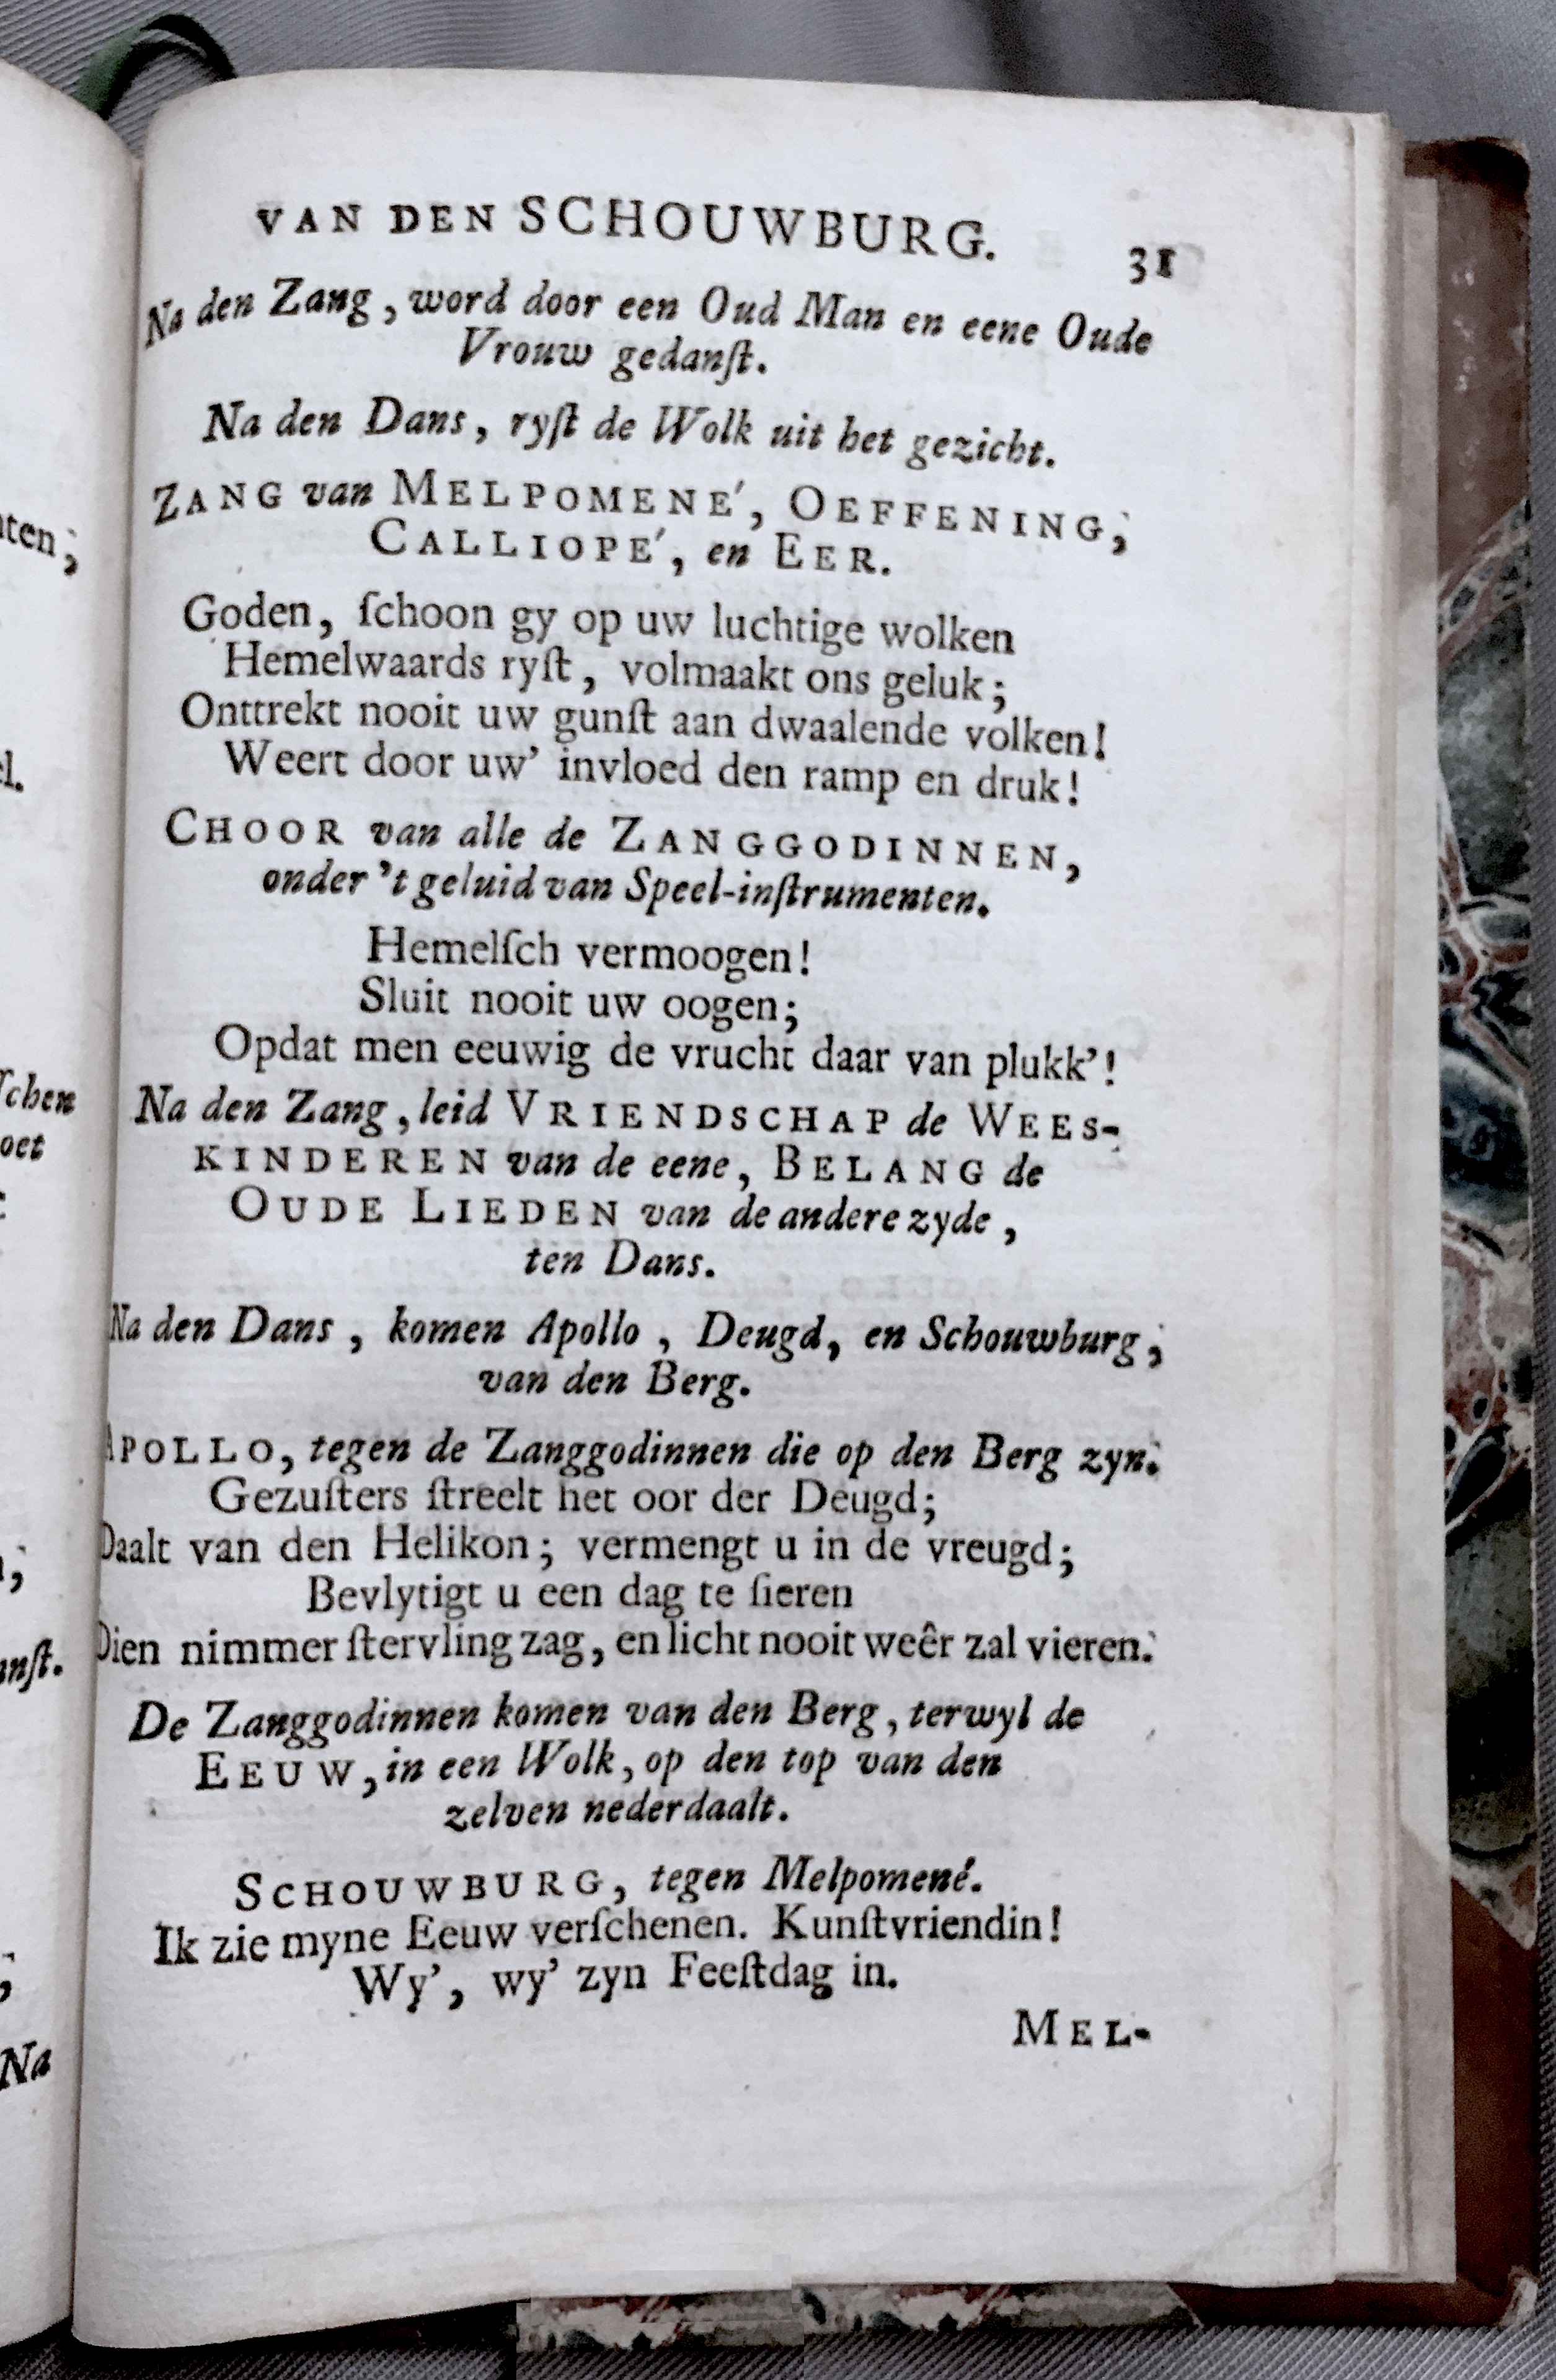 VAN DEN SCHOUWBURG. 31
Na den Zang, word door een Oud Man en eene Oude
Vrouw gedanſt.
Na den Dans, ryſt de Wolk uit het gezicht.
ZANG van MELPOMENE', OEFFENING,
CALLIOPE', en EER.
Goden, ſchoon gy op uw luchtige wolken
Hemelwaards ryſt, volmaakt ons geluk;
Onttrekt nooit uw gunſt aan dwaalende volken!
Weert door uw' invloed den ramp en druk!
CHOOR van alle de ZANGGODINNEN,
onder 't geluid van Speel-inſtrumenten.
Hemelſch vermoogen!
Sluit nooit uw oogen;
Opdat men eeuwig de vrucht daar van plukk'!
Na den Zang, leid VRIENDSCHAP de WEES-
KINDEREN van de eene, BELANG de
OUDE LIEDEN van de andere zyde,
ten Dans.
Na den Dans, komen Apollo, Deugd, en Schouwburg,
van den Berg.
APOLLO, tegen de Zanggodinnen die op den Berg zyn.
Gezuſters ſtreelt het oor der Deugd;
Daalt van den Helikon; vermengt u in de vreugd;
Bevlytigt u een dag te ſieren
Dien nimmer ſtervling zag, en licht nooit weêr zal vieren.
De Zanggodinnen komen van den Berg, terwyl de
EEUW, in een Wolk, op den top van den
zelven nederdaalt.
SCHOUWBURG, tegen Melpomené.
Ik zie myne Eeuw verſchenen. Kunſtvriendin!
Wy', wy' zyn Feeſtdag in.
MEL-